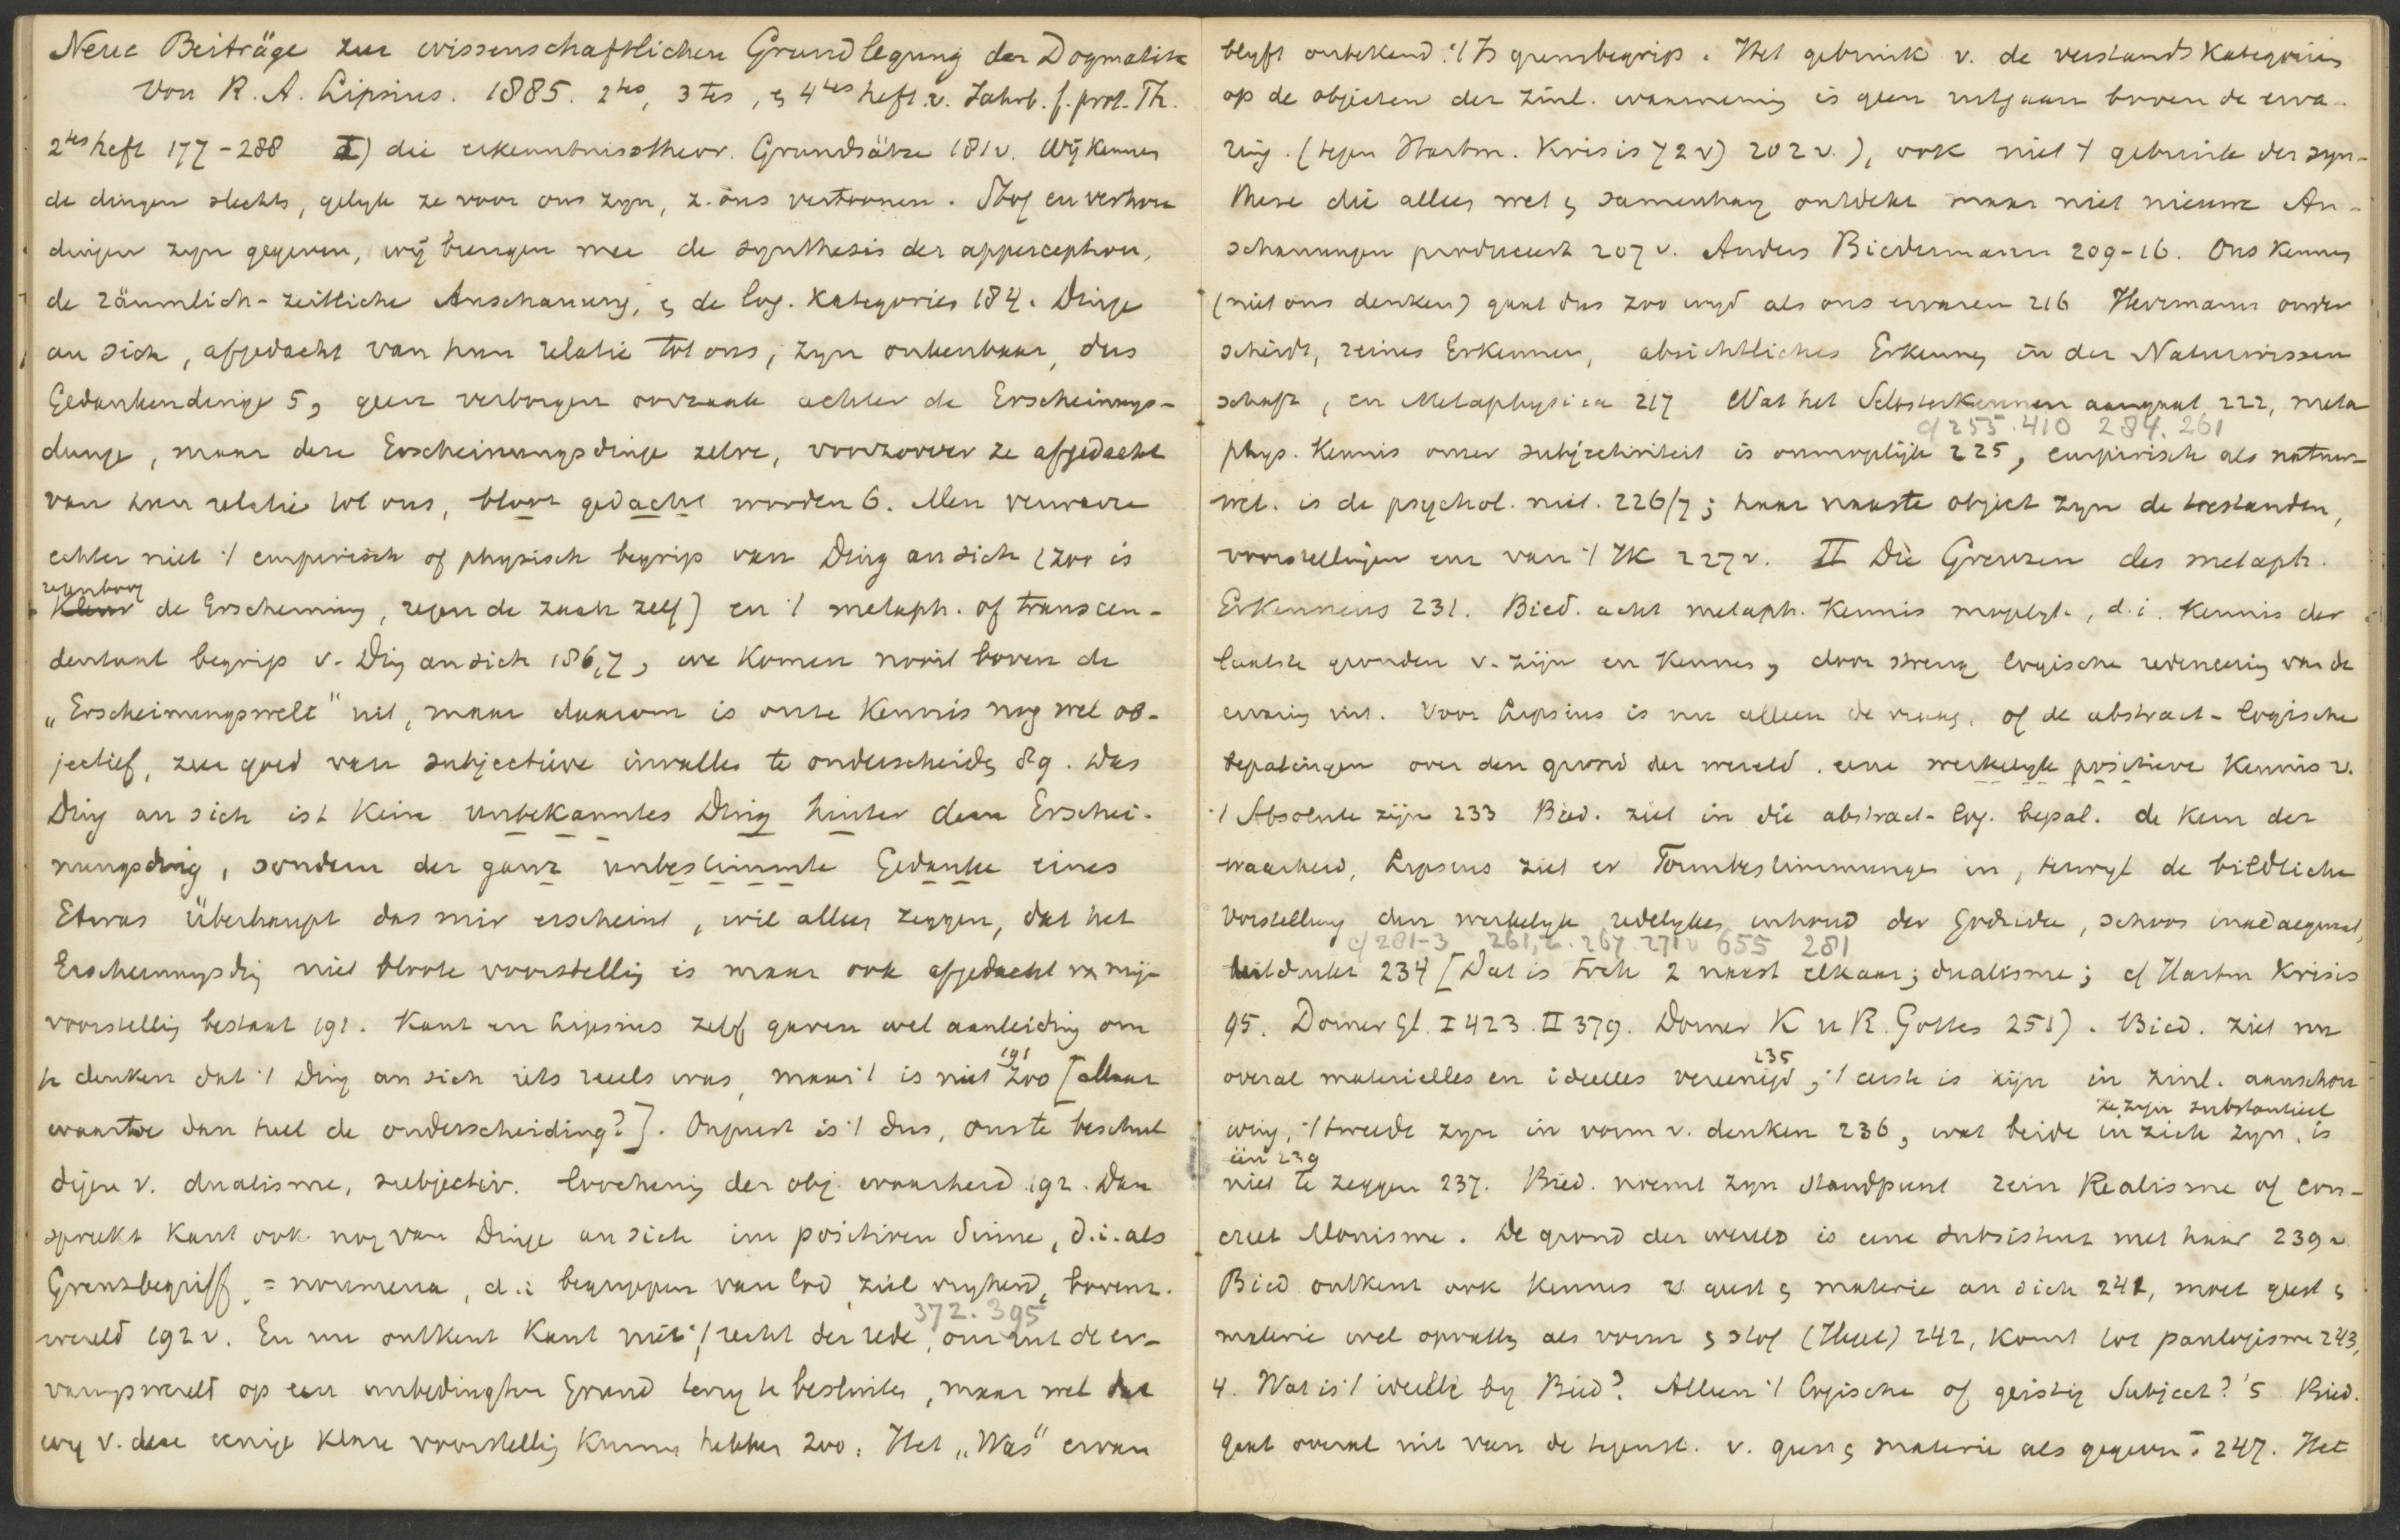 Neue Beiträge zur wissenschaftlichen Grundlegung der Dogmatik
von R. A. Lipsius. 1885. 2tes, 3tes, & 4tes heft v. Jahrb. f. prot. Th.
2tes heft 177-288 I) die erkenntnisstheor. Grundsätze 181v. Wij kennen
de dingen slechts, gelijk ze voor ons zijn, z. ons vertoonen. Stof en verhou
dingen zijn gegeven, wij brengen mee de synthesis der apperception,
de räumlich-zeitliche Anschauung, & de log. kategories 184. Dinge
an sich, afgedacht van hun relatie tot ons, zijn onkenbaar, dus
Gedankendinge 5, geen verborgen oorzaak achter de Erscheinungs-
dinge, maar deze Erscheinungsdinge zelve, voorzoover ze afgedacht
van hun relatie tot ons, bloot gedacht worden 6. Men verwarre
echter niet 't empirisch of physisch begrip van Ding an sich (zoo is
regenboog
de Erscheinung, regen de zaak zelf) en 't metaph. of transcen-
dentaal begrip v. Ding an sich 186,7, we komen nooit boven de
„Erscheinungswelt" uit, maar daarom is onze kennis nog wel ob-
jectief, zeer goed van subjectieve invallen te onderscheiden 89. Das
Ding an sich ist kein unbekanntes Ding hinter dem Erschei-
nungsding, sondern der ganz unbestimmte Gedanke eines
Etwas Überhaupt das mir erscheint, wil alleen zeggen, dat het
Erscheinungsding niet bloote voorstelling is maar ook afgedacht van mijn
voorstelling bestaat 191. Kant en Lipsius zelf gaven wel aanleiding om
te denken dat 't Ding an sich iets reëels was, maar 't is niet zoo 191 [Maar
waartoe dan heel de onderscheiding?]. Onjuist is 't dus, ons te beschul
digen v. dualisme, subjectiv. loochening der obj. waarheid 192. Dan
spreekt Kant ook nog van Dinge an sich im positiven Sinne, d.i. als
Grenzbegriff, = noumena, d.i. begrippen van God, ziel vrijheid, bovenz.
372. 395
wereld 192v. En nu ontkent Kant niet 't recht der rede, om uit de er-
varingswereld op een unbedingten Grund terug te besluiten, maar wel dat
wij v. deze eenige klare voorstelling kunnen hebben 200. Het „Was" ervan
blijft onbekend. 't Is grensbegrip. Het gebruik v. de verstandskategoriën
op de objecten der zinl. waarneming is geen uitgaan boven de erva-
ring. (tegen Hartm. Krisis 72v) 202v.), ook niet 't gebruik der syn-
these die alleen wet & samenhang ontdekt maar niet nieuwe An-
schauungen produceert 207v. Anders Biedermann 209-16. Ons kennen
(niet ons denken) gaat dus zoo wijd als ons ervaren 216 Herrmann onder
scheidt, reines Erkennen, absichtliches Erkennen in der Naturwissen
schaft, en Metaphysica 217 Wat het Selbsterkennen aangaat 222, meta
cf 255. 410 284. 261
phys. Kennis onzer subjectiviteit is onmogelijk 225, empirisch als natuur-
wet. is de psychol. niet. 226/7; haar naaste object zijn de toestanden,
voorstellingen enz van 't Ik 227v. II Die Grenzen des metaph.
Erkennens 231. Bied. acht metaph. kennis mogelijk, d.i. kennis der
laatste gronden v. zijn en kennen, door streng logische redeneering van de
ervaring uit. Voor Lipsius is nu alleen de vraag, of de abstract-logische
bepalingen over den grond der wereld eene werkelijk positieve kennis v.
't Absolute zijn 233 Bied. ziet in die abstract-log. bepal. de kern der
waarheid, Lipsius ziet er Formbestimmungen in, terwijl de bildliche
Vorstellung den werkelijk redelijken inhoud der Godsidee, schoon inadaequaat,
cf 281-3 261,2. 267. 271v 655 281
uitdrukt 234 [Dat is toch 2 naast elkaar; dualisme; cf Hartm Krisis
95. Dorner Gl. I 423. II 379. Dorner K u R. Gottes 251). Bied. ziet nu
overal materielles en ideelles vereenigd 235, 't eerste is zijn in zinl. aanschou
wing, 't tweede zijn in vorm v. denken 236, wat beide in zich zijn, is
ze zijn substantieel
één 239
niet te zeggen 237. Bied. noemt zijn standpunt rein Realisme of con-
creet Monisme. De grond der wereld is eene subsistent met haar 239v
Bied ontkent ook kennis v. geest & materie an sich 241, moet geest &
materie wel opvatten als vorm & stof (Hegel) 242, komt tot panlogisme 243,
4. Wat is 't ideelle bij Bied? Alleen 't logische of geistig Subject? '5 Bied.
gaat overal uit van de tegenst. v. geest & materie als gegeven 247. Het